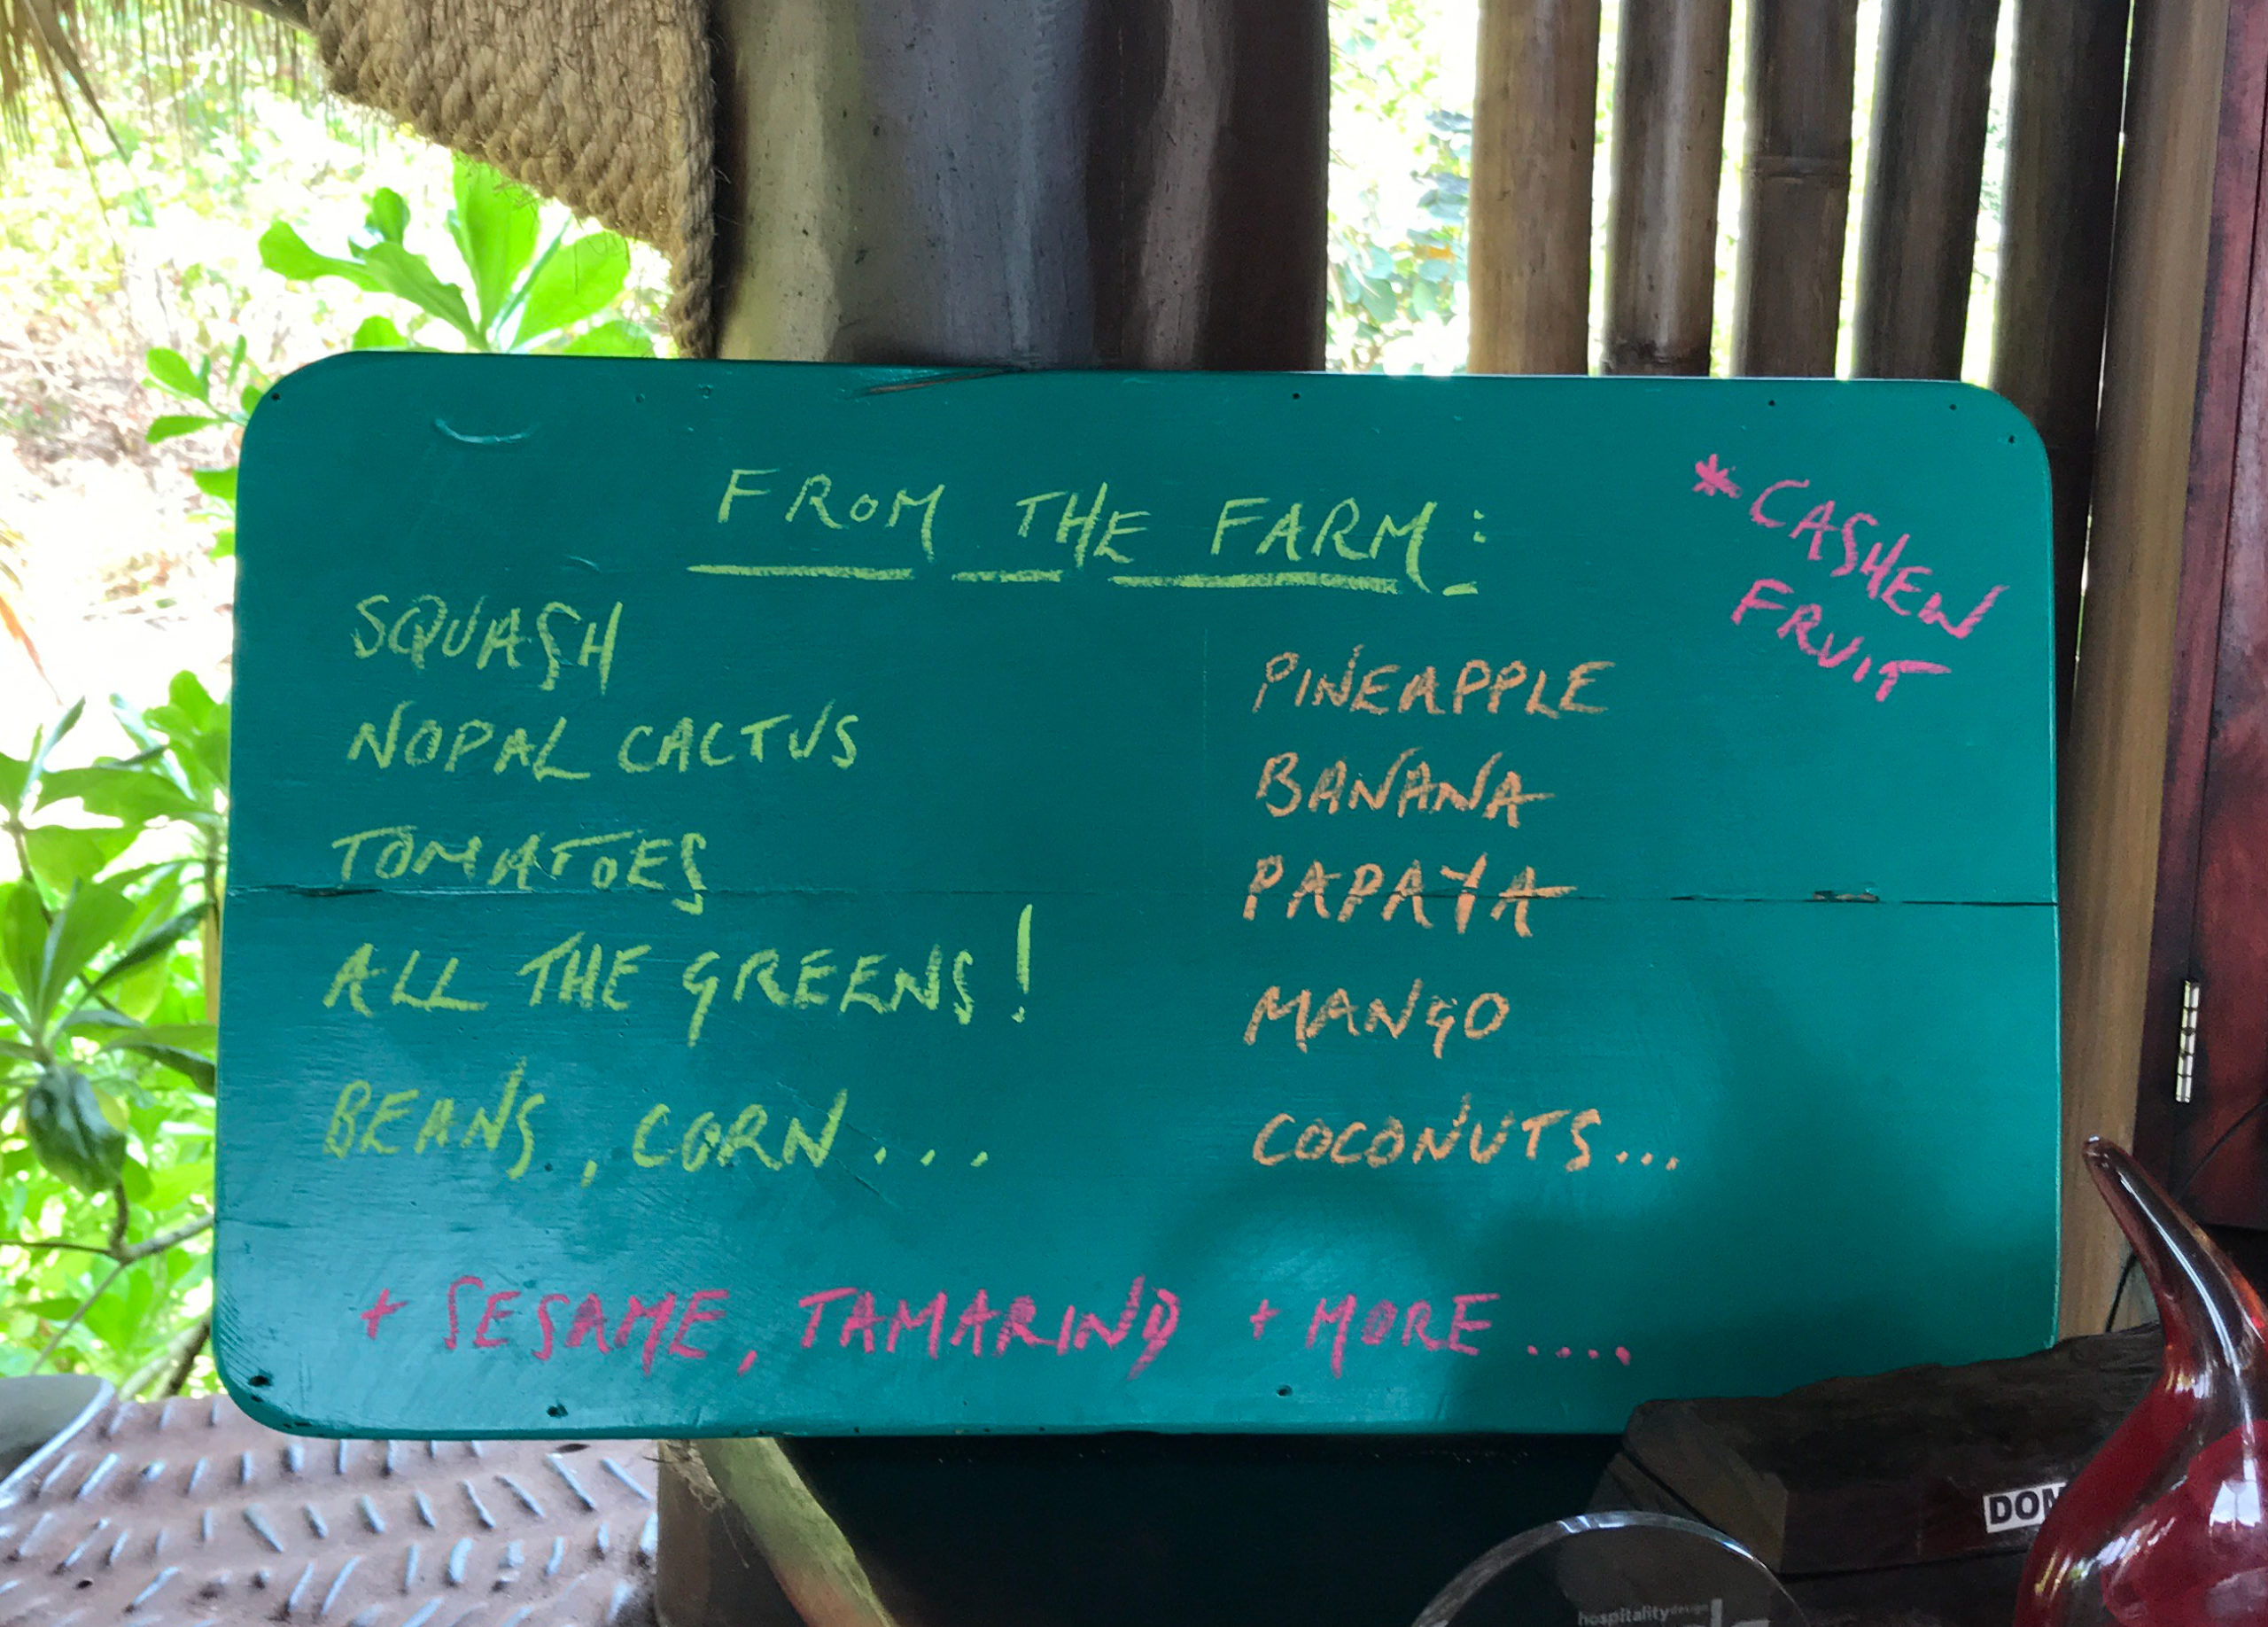 FROM THE FARM:
* CASHEW
FRUIT
SQUASH
NOPAL CACTUS
TOMATOES
ALL THE GREENS!
BEANS, CORN...
PINEAPPLE
BANANA
PAPAYA
MANGO
COCONUTS...
+ SESAME, TAMARIND + MORE ....
DON
hospitalitydesign